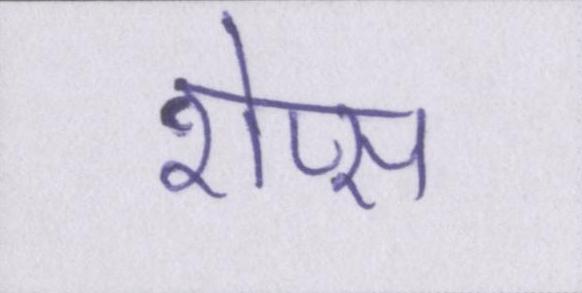 शेप्स